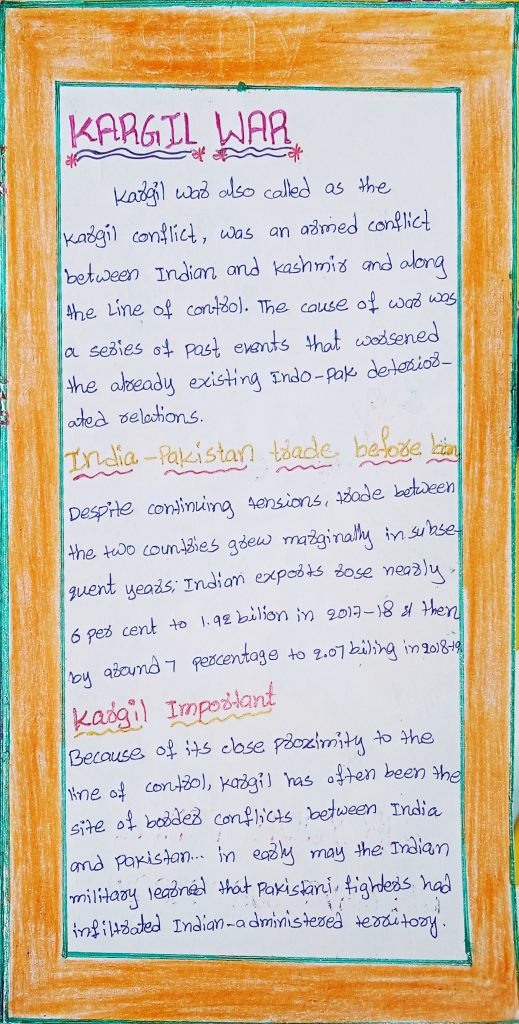 KARGIL WAR
Kargil war also called as the
Kargil conflict, was an armed conflict
between Indian and Kashmir and along
the Line of control. The cause of war was
a series of past events that worsened
the already existing Indo-Pak deterior-
ated relations.
India-Pakistan trade before ban
Despite continuing tensions, trade between
the two countries grew marginally in subse-
quent years; Indian exports rose nearly
6 per cent to 1.92 bilion in 2017-18 & then
by around 7 percentage to 2.07 biling in 2018-19
Kargil Important
Because of its close proximity to the
line of control, Kargil has often been the
site of border conflicts between India
and Pakistan... in early may the Indian
military learned that Pakistani, fighters had
infiltrated Indian-administered territory.